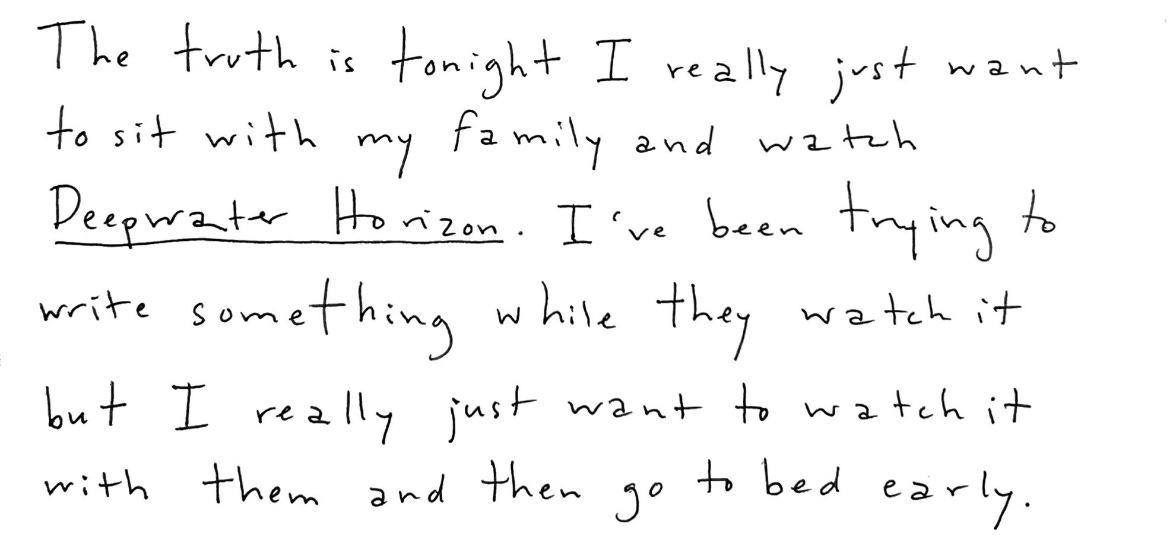 The truth is tonight I really just want
to sit with my family and watch
Deepwater Horizon. I've been trying to
write something while they watch it
but I really just want to watch it
with them and then go to bed early.